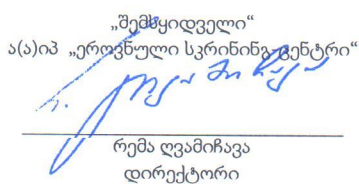 „შემსყიდველი“
ა(ა)იპ „ეროვნული სკრინინგ ცენტრი“
რემა ღვამიჩავა
დირექტორი